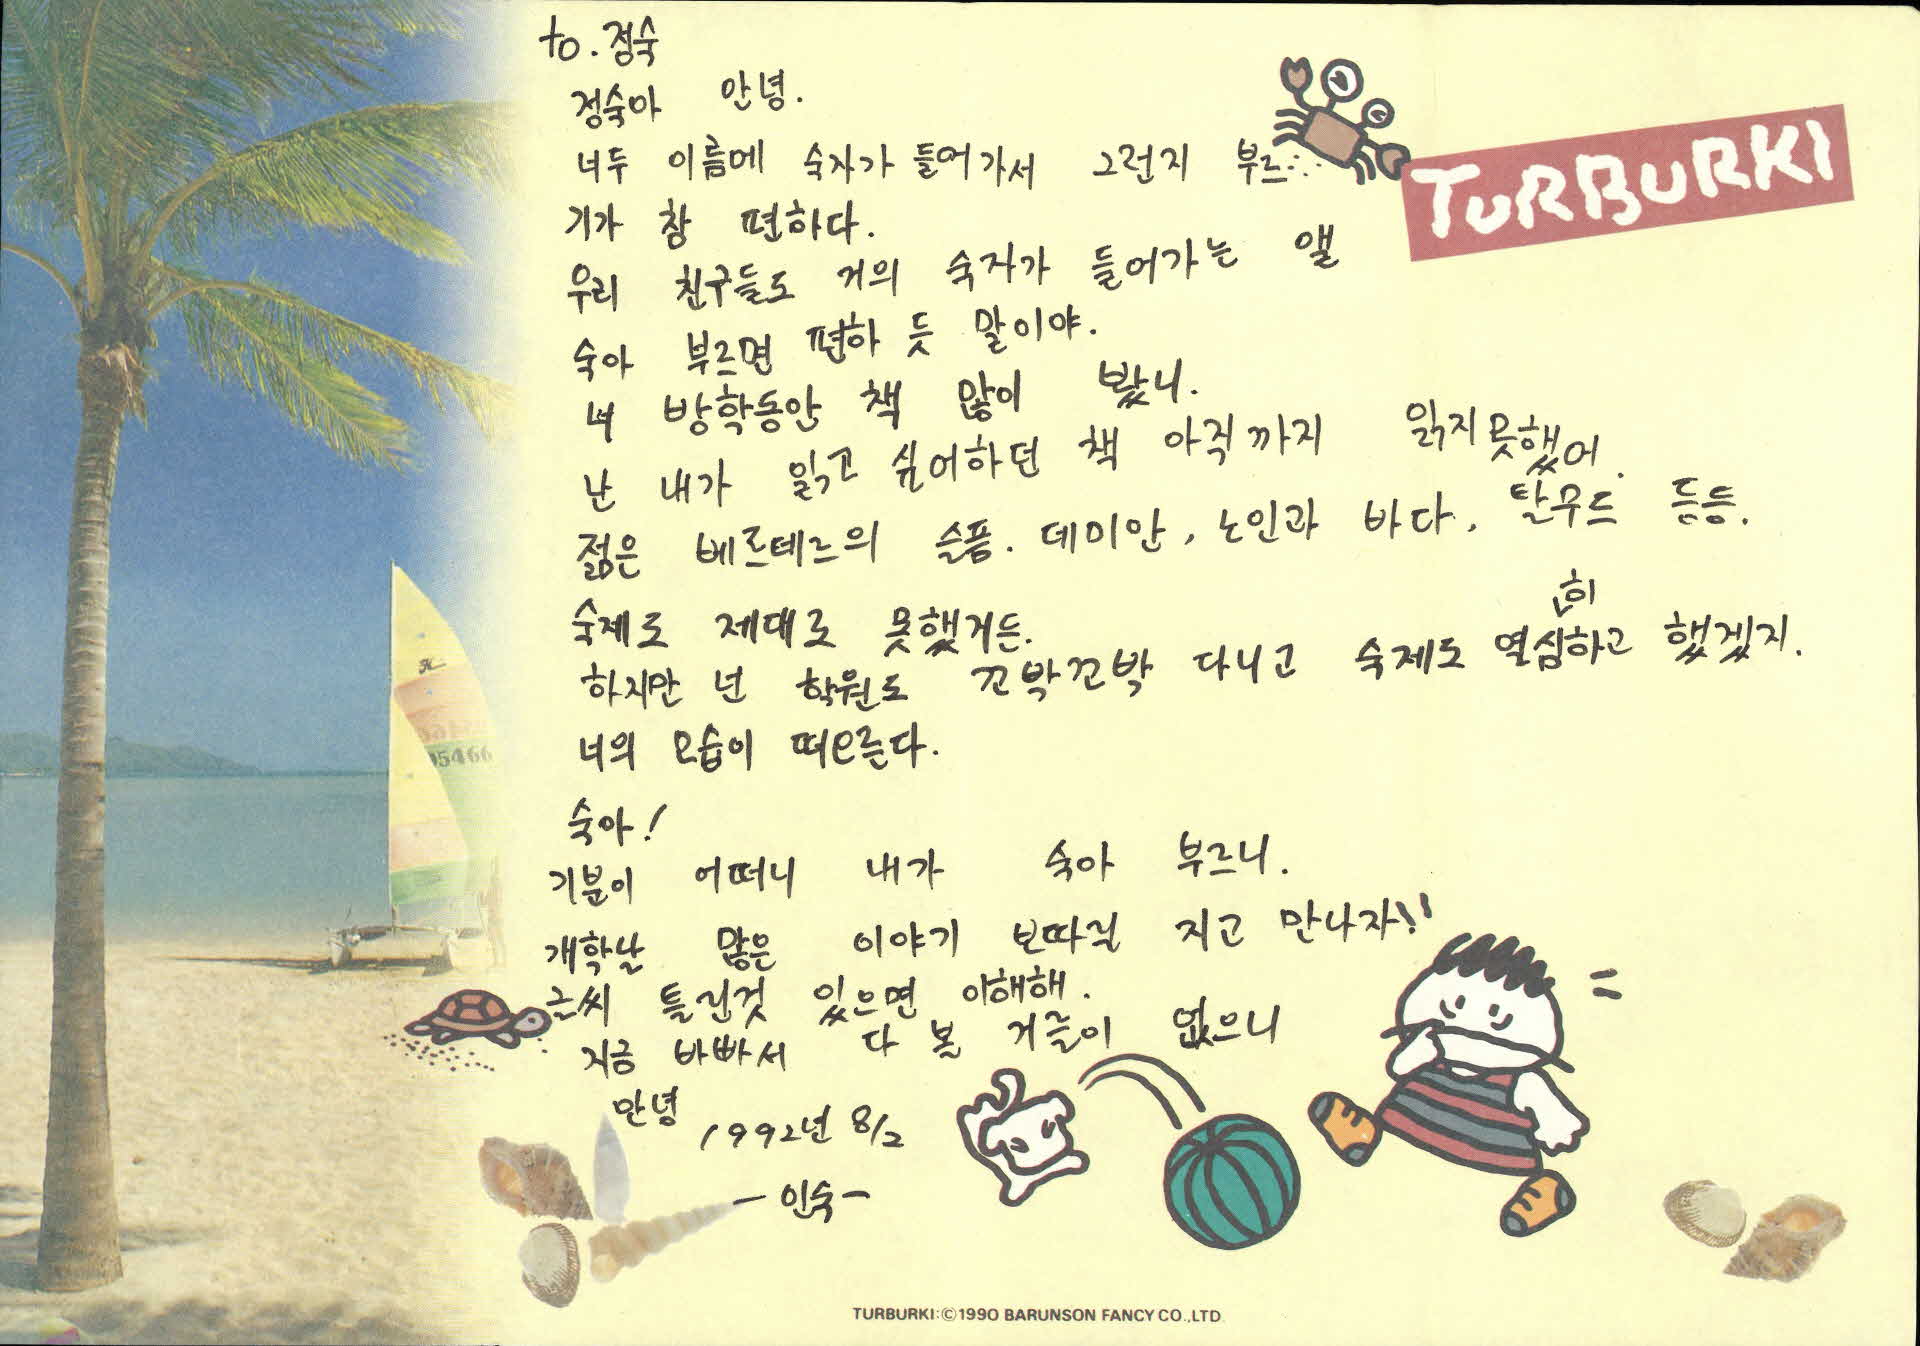 to. 정숙
정숙아 안녕.
너두 이름에 숙자가 들어가서 그런지 부르..
기가 참 편하다.
우리 친구들도 거의 숙자가 들어가는 앨
숙아 부르면 편하 듯 말이야.
너 방학동안 책 많이 봤니.
난 내가 읽고 싶어하던 책 아직까지 읽지못했어.
젊은 베르테르의 슬픔. 데미안, 노인과 바다, 탈무드 등등.
숙제도 제대로 못했거든.
하지만 넌 학원도 꼬박꼬박 다니고 숙제도 열심히하고 했겠지.
너의 모습이 떠오른다.
숙아!
기분이 어떠니 내가 숙아 부르니.
개학날 많은 이야기 보따리 지고 만나자!!
글씨 틀린것 있으면 이해해.
지금 바빠서 다 볼 겨를이 없으니
안녕
1992년 8/2
- 인숙 -
TURBURKI
05466
TURBURKI:©1990 BARUNSON FANCY CO.,LTD.